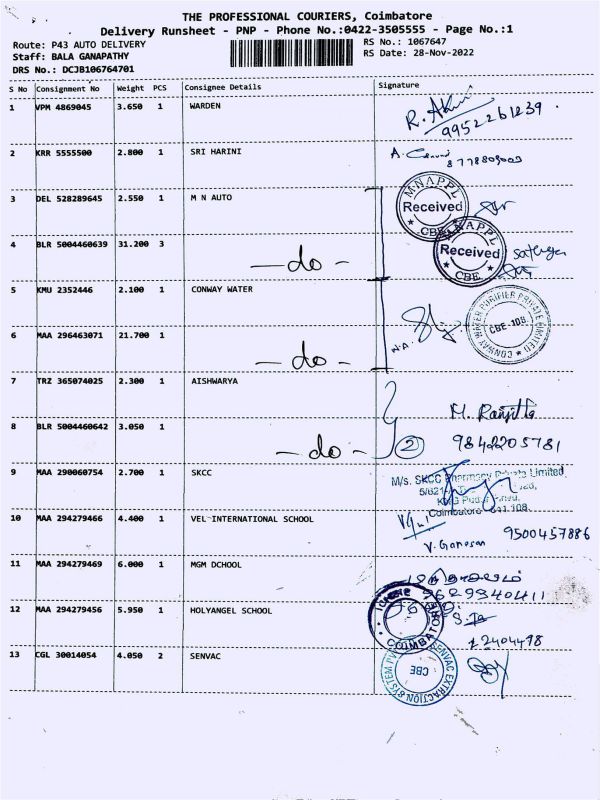 THE PROFESSIONAL COURIERS, Coimbatore
Delivery Runsheet - PNP - Phone No.:0422-3505555 - Page No.:1
Route: P43 AUTO DELIVERY
RS No.: 1067647
Staff: BALA GANAPATHY
RS Date: 28-Nov-2022
DRS No.: DCJB106764701
S No Consignment No Weight PCS Consignee Details Signature
1 VPM 4869045 3.650 1 WARDEN
9952261239
2 KRR 5555500 2.800 1 SRI HARINI
3 DEL 528289645 2.550 1 M N AUTO
MNAPPL Received CBE
4 BLR 5004460639 31.200 3
- do -
MNAPPL Received CBE
5 KMU 2352446 2.100 1 CONWAY WATER
CONWAY WATER PURIFIER PRIVATE LIMITED CBE-108.
6 MAA 296463071 21.700 1
- do -
7 TRZ 365074025 2.300 1 AISHWARYA
M. Ranjitha
8 BLR 5004460642 3.050 1
- do - 2 9842205781
9 MAA 290060754 2.700 1 SKCC
M/s. SKCC Pharmacy Private Limited
Coimbatore - 641 108.
10 MAA 294279466 4.400 1 VEL INTERNATIONAL SCHOOL
V. Ganesan 9500457886
11 MAA 294279469 6.000 1 MGM DCHOOL
9629940411
12 MAA 294279456 5.950 1 HOLYANGEL SCHOOL
COIMBATORE
13 CGL 30014054 4.050 2 SENVAC
SENVAC EXTRACTION SYSTEM CBE